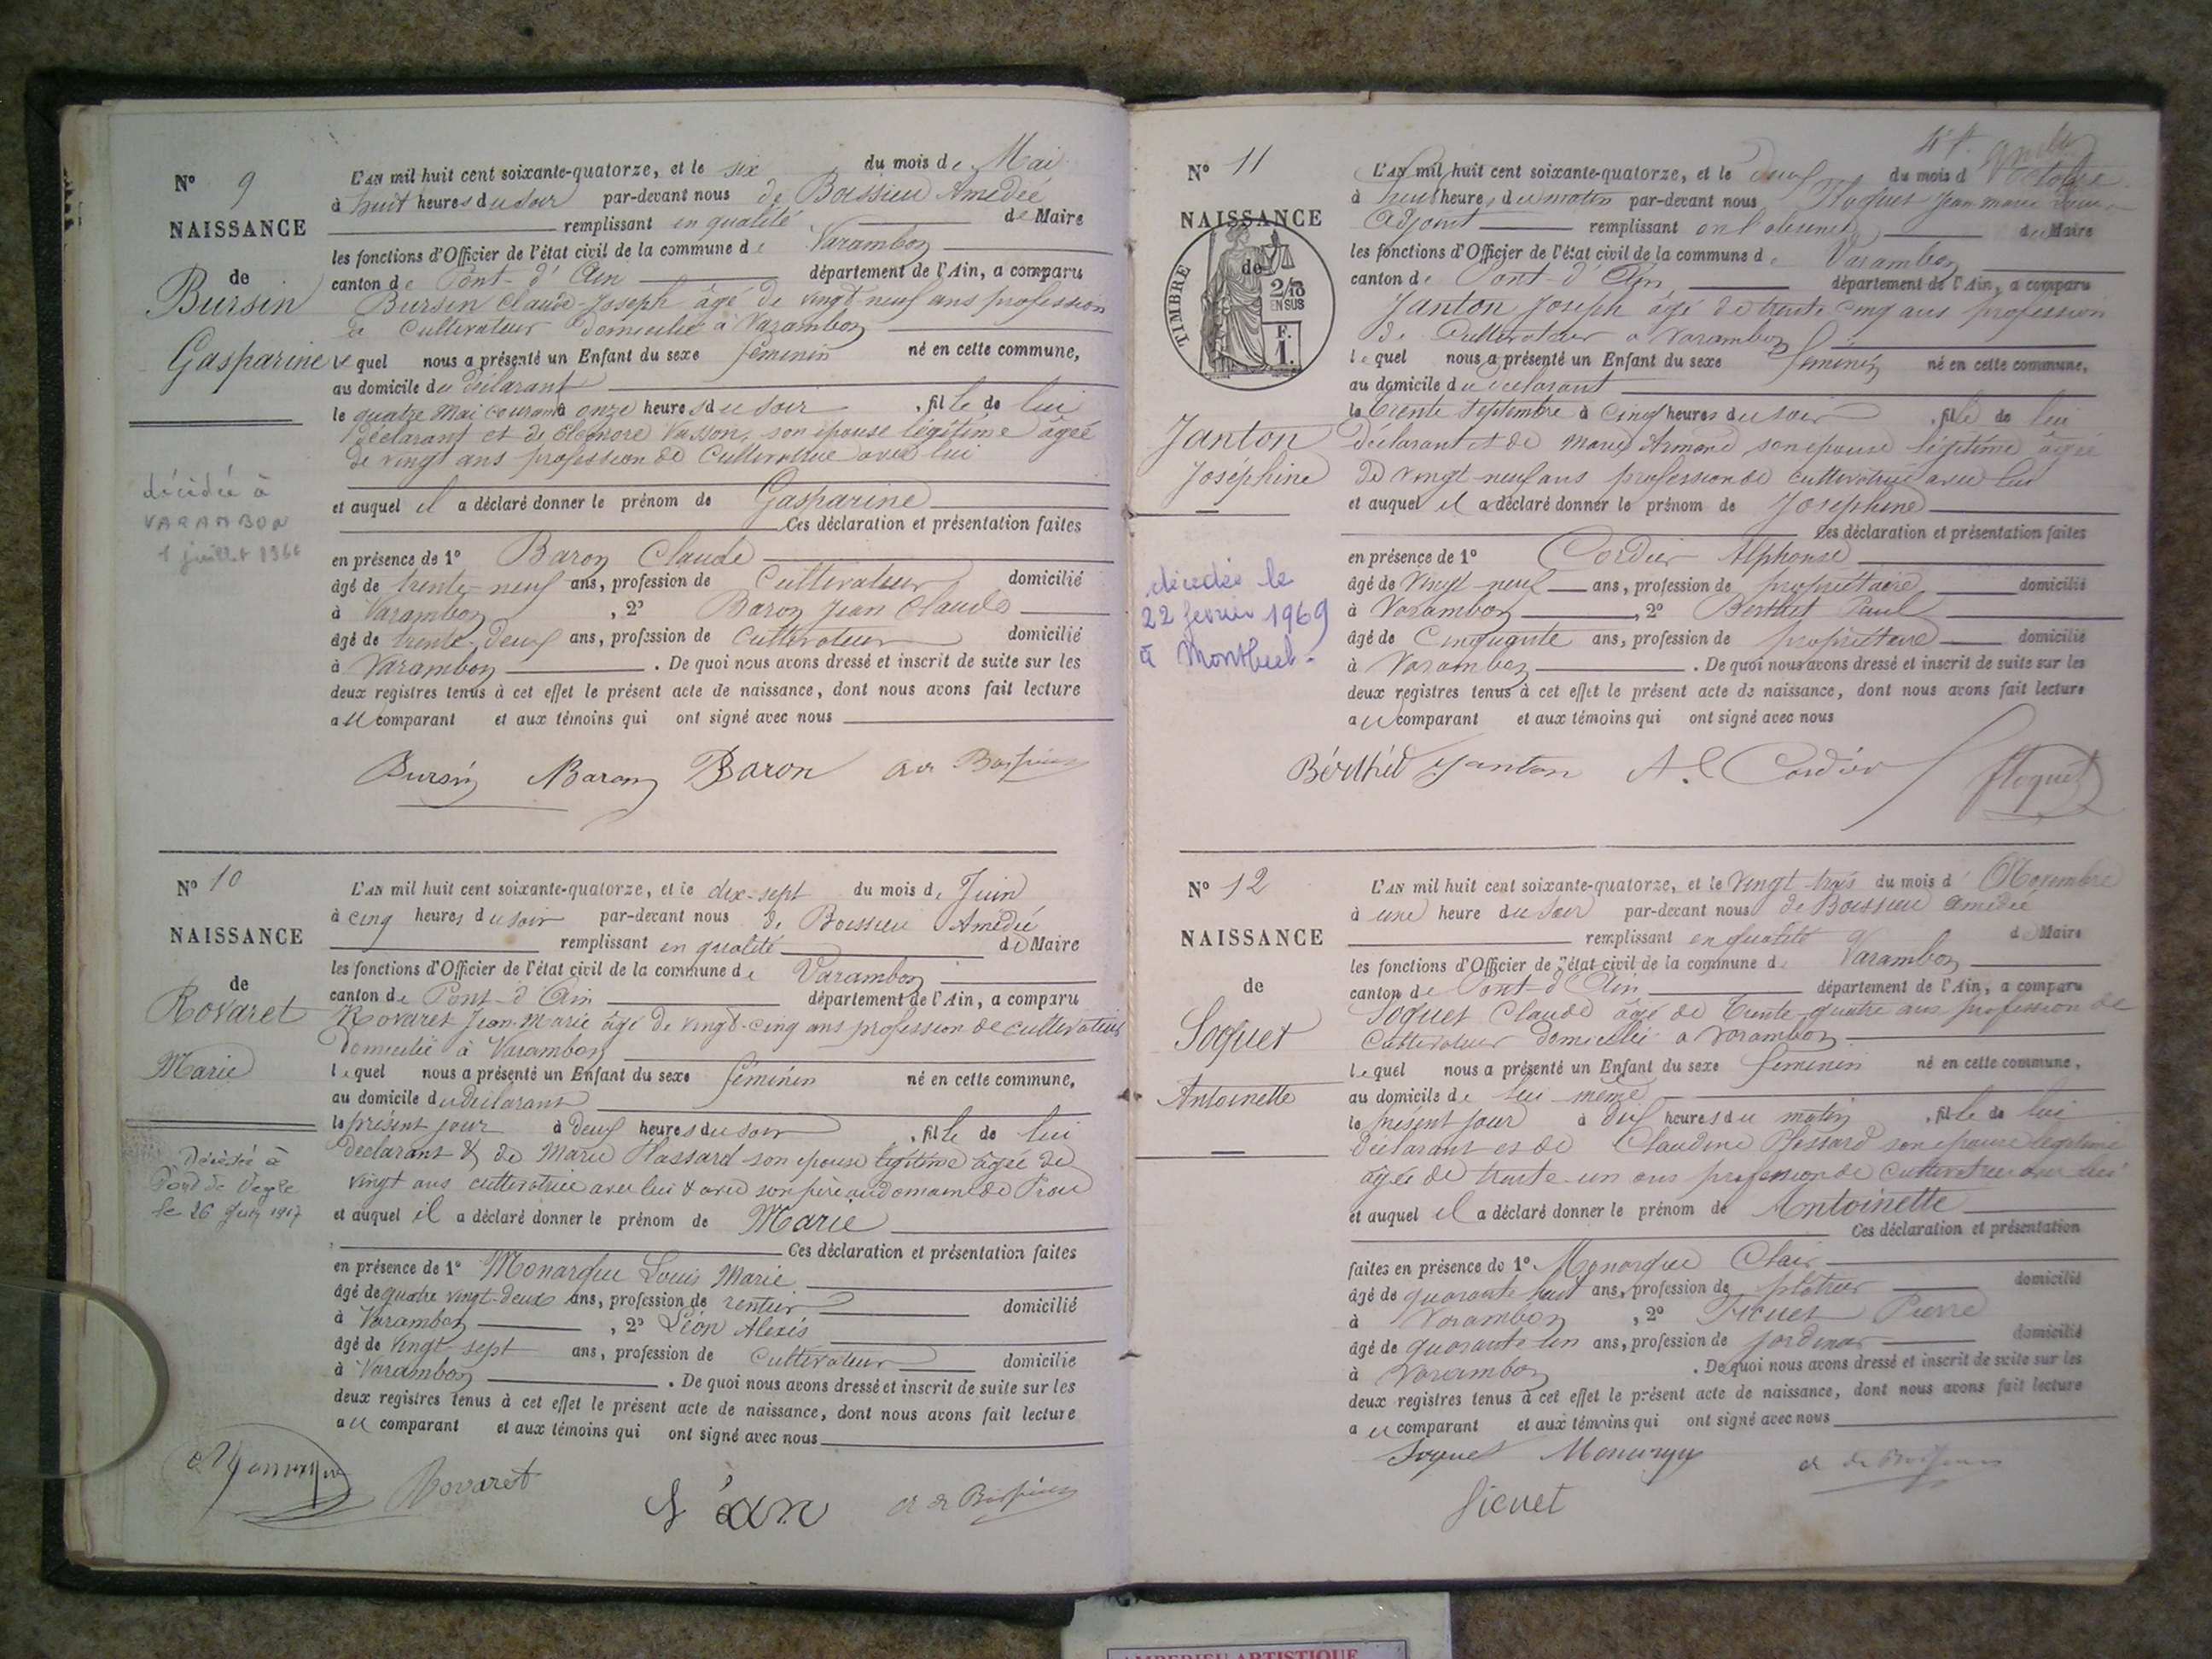 N° 9
NAISSANCE
de
Bursin
Gasparine
décédée à
VARAMBON
1 juillet
L'AN mil huit cent soixante-quatorze, et le six du mois de Mai
à huit heures du soir par-devant nous de Boissieu Amédée
remplissant en qualité de Maire
les fonctions d'Officier de l'état civil de la commune de Varambon
canton de Pont-d'Ain département de l'Ain, a comparu
Bursin Claude-Joseph âgé de vingt-neuf ans profession
de Cultivateur domicilié à Varambon
lequel nous a présenté un Enfant du sexe féminin né en cette commune,
au domicile du déclarant
le quatre Mai courant à onze heures du soir, fille de lui
déclarant et de Eléonore Vasson, son épouse légitime âgée
de vingt ans profession de Cultivatrice avec lui
et auquel il a déclaré donner le prénom de Gasparine
Ces déclaration et présentation faites
en présence de 1° Baron Claude
âgé de trente-neuf ans, profession de Cultivateur domicilié
à Varambon, 2° Baron Jean Claude
âgé de trente-deux ans, profession de Cultivateur domicilié
à Varambon. De quoi nous avons dressé et inscrit de suite sur les
deux registres tenus à cet effet le présent acte de naissance, dont nous avons fait lecture
au comparant et aux témoins qui ont signé avec nous
Bursin Baron Baron A de Boissieu
N° 10
NAISSANCE
de
Rovaret
Marie
Décédée à
Pont de Veyle
le 26 1917
L'AN mil huit cent soixante-quatorze, et le dix-sept du mois de Juin
à cinq heures du soir par-devant nous de Boissieu Amédée
remplissant en qualité de Maire
les fonctions d'Officier de l'état civil de la commune de Varambon
canton de Pont-d'Ain département de l'Ain, a comparu
Rovaret Jean-Marie âgé de vingt-cinq ans profession de cultivateur
domicilié à Varambon
lequel nous a présenté un Enfant du sexe féminin né en cette commune,
au domicile du déclarant
le présent jour à deux heures du soir, fille de lui
déclarant & de Marie Plassard son épouse légitime âgée de
vingt ans cultivatrice avec lui & avec son père au domaine de
et auquel il a déclaré donner le prénom de Marie
Ces déclaration et présentation faites
en présence de 1° Monarque Louis Marie
âgé de quatre vingt-deux ans, profession de rentier domicilié
à Varambon, 2° Léon Alexis
âgé de vingt-sept ans, profession de Cultivateur domicilié
à Varambon. De quoi nous avons dressé et inscrit de suite sur les
deux registres tenus à cet effet le présent acte de naissance, dont nous avons fait lecture
au comparant et aux témoins qui ont signé avec nous
Monarque Rovaret Léon A de Boissieu
N° 11
NAISSANCE
de
TIMBRE
2/10
EN SUS
F.
1.
Janton
Joséphine
décédée le
22 février 1969
à Montluel.
L'AN mil huit cent soixante-quatorze, et le deux du mois d'octobre
à heures du matin par-devant nous Floquet Jean-marie
Adjoint remplissant en l'absence du Maire
les fonctions d'Officier de l'état civil de la commune de Varambon
canton de Pont-d'Ain département de l'Ain, a comparu
Janton Joseph âgé de trente cinq ans profession
de Cultivateur à Varambon
lequel nous a présenté un Enfant du sexe féminin né en cette commune,
au domicile du déclarant
le trente septembre à cinq heures du soir, fille de lui
déclarant et de Marie Armand son épouse légitime âgée
de vingt neuf ans profession de cultivatrice avec lui
et auquel il a déclaré donner le prénom de Joséphine
Ces déclaration et présentation faites
en présence de 1° Cordier Alphonse
âgé de vingt-neuf ans, profession de propriétaire domicilié
à Varambon, 2° Berthet Paul
âgé de Cinquante ans, profession de propriétaire domicilié
à Varambon. De quoi nous avons dressé et inscrit de suite sur les
deux registres tenus à cet effet le présent acte de naissance, dont nous avons fait lecture
au comparant et aux témoins qui ont signé avec nous
Bérthéd Janton Al Cordier Floquet
N° 12
NAISSANCE
de
Soquet
Antoinette
L'AN mil huit cent soixante-quatorze, et le vingt-trois du mois d Novembre
à une heure du soir par-devant nous de Boissieu Amédée
remplissant en qualité de Maire
les fonctions d'Officier de l'état civil de la commune de Varambon
canton de Pont-d'Ain département de l'Ain, a comparu
Soquet Claude âgé de trente-quatre ans profession de
Cultivateur domicilié à Varambon
lequel nous a présenté un Enfant du sexe féminin né en cette commune,
au domicile de lui-même
le présent jour à dix heures du matin, fille de lui
déclarant et de Claudine Plessard son épouse légitime
âgée de trente-un ans profession de cultivatrice avec lui
et auquel il a déclaré donner le prénom de Antoinette
Ces déclaration et présentation
faites en présence de 1° Monarque Clair
âgé de quarante huit ans, profession de plâtrier domicilié
à Varambon, 2° Ficuet Pierre
âgé de quarante-un ans, profession de domicilié
à Varambon. De quoi nous avons dressé et inscrit de suite sur les
deux registres tenus à cet effet le présent acte de naissance, dont nous avons fait lecture
au comparant et aux témoins qui ont signé avec nous
Soquet Monarque A de Boissieu
Ficuet
AMBERIEU ARTISTIQUE